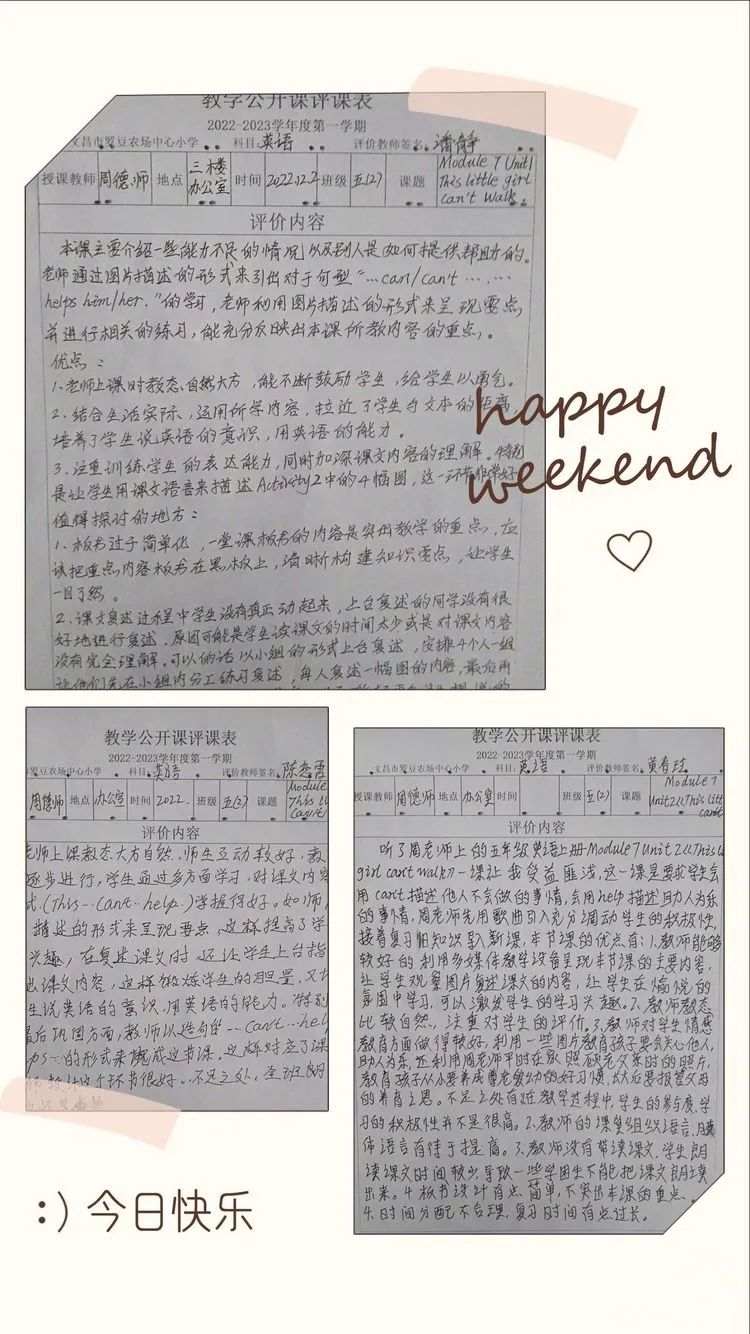 教学公开课评课表
2022-2023学年度第一学期
文昌市罗豆农场中心小学 科目:英语 评价教师签名:潘静
授课教师 周德师 地点 三楼办公室 时间 2022.12.2 班级 五(2) 课题 Module 7 Unit1 This little girl can't walk
评价内容
本课主要介绍一些能力不足的情况以及别人是如何提供帮助的。
老师通过图片描述的形式来引出对于句型“...can/can't ... ...
helps him/her.”的学习,老师利用图片描述的形式来呈现要点
并进行相关的练习,能充分反映出本课所教内容的重点。
优点:
1、老师上课时教态自然大方,能不断鼓励学生,给学生以勇气。
2、结合生活实际,运用所学内容,拉近了学生与文本的距离,
培养了学生说英语的意识,用英语的能力。
3、注重训练学生的表达能力,同时加深课文内容的理解。特别
是让学生用课文语言来描述Activity2中的4幅图,这一环节非常好
值得探讨的地方:
1、板书过于简单化,一堂课板书的内容是突出教学的重点,应
该把重点内容板书在黑板上,清晰构建知识要点,让学生
一目了然。
2、课文复述过程中学生没有真正动起来,上台复述的同学没有很
好地进行复述,原因可能是学生读课文的时间太少或是对课文内容
没有完全理解。可以的话以小组的形式上台复述,安排4个人一组
让他们先在小组内分工练习复述,每人复述一幅图的内容,最后再
happy
weekend
教学公开课评课表
2022-2023学年度第一学期
罗豆农场中心小学 科目:英语 评价教师签名:
周德师 地点 办公室 时间 2022. 班级 五(2) 课题 Module This li Can't
评价内容
老师上课教态大方自然,师生互动较好,教
逐步进行,学生通过多方面学习,对课文内容
式.(This...Can't...help.)掌握得好。如师
描述的形式来呈现要点,这样提高了学
兴趣,在复述课文时,还让学生上台指
出课文内容,这样锻炼学生的胆量,又
生说英语的意识,用英语的能力。特别
最后巩固方面,教师以造句“...can't...hel
ps...的形式来完成这节课。这样对应了课
这个环节很好。不足之处,全班朗
教学公开课评课表
2022-2023学年度第一学期
文昌市罗豆农场中心小学 科目:英语 评价教师签名:黄春
授课教师 周德师 地点 办公室 时间 班级 五(2) 课题 Module 7 Unit2《This litt can't
评价内容
听了周老师上的五年级英语上册Module7 Unit 2《This li
girl can't walk》一课让我受益匪浅,这一课是要求学生会
用can't描述他人不会做的事情,会用help描述助人为乐
的事情,周老师先用歌曲引入充分调动学生的积极性,
接着复习旧知识导入新课,本节课的优点有:1、教师能够
较好的利用多媒体教学设备呈现本节课的主要内容,
让学生观察图片复述课文的内容,让学生在愉悦的
氛围中学习,可以激发学生的学习兴趣。2、教师教态
比较自然,注重对学生的评价。3、教师对学生情感
教育方面做得较好,利用一些图片教育孩子要关心他人,
助人为乐,还利用周老师平时在家照顾老父亲时的照片,
教育孩子从小要养成尊老爱幼的好习惯,长大后要报答父母
的养育之恩。不足之处有:1、在教学过程中,学生的参与度,学
习的积极性并不是很高。2、教师的课堂组织语言,肢
体语言有待于提高。3、教师没有带读课文,学生朗
读课文时间较少,导致一些学困生不能把课文朗读
出来。4、板书设计有点简单,不突出本课的重点。
4、时间分配不合理,复习时间有点过长。
:) 今日快乐